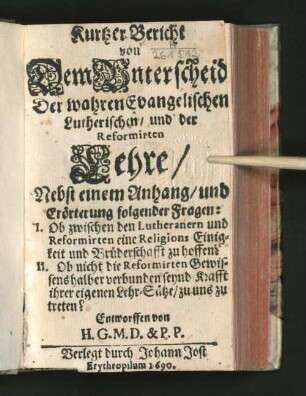 Kurtzer Bericht
von
261512
Dem Unterscheid
Der wahren Evangelischen
Lutherischen/ und der
Reformirten
Lehre/
Nebst einem Anhang/ und
Erörterung folgender Fragen:
I. Ob zwischen den Lutheranern und
Reformirten eine Religions Einig-
keit und Brüderschafft zu hoffen?
II. Ob nicht die Reformirten Gewis-
sens halber verbunden seynd Krafft
ihrer eigenen Lehr-Sätze/ zu uns zu
treten?
Entworffen von
H. G. M. D. & P. P.
Verlegt durch Johann Jost
Erythropilum 1690.